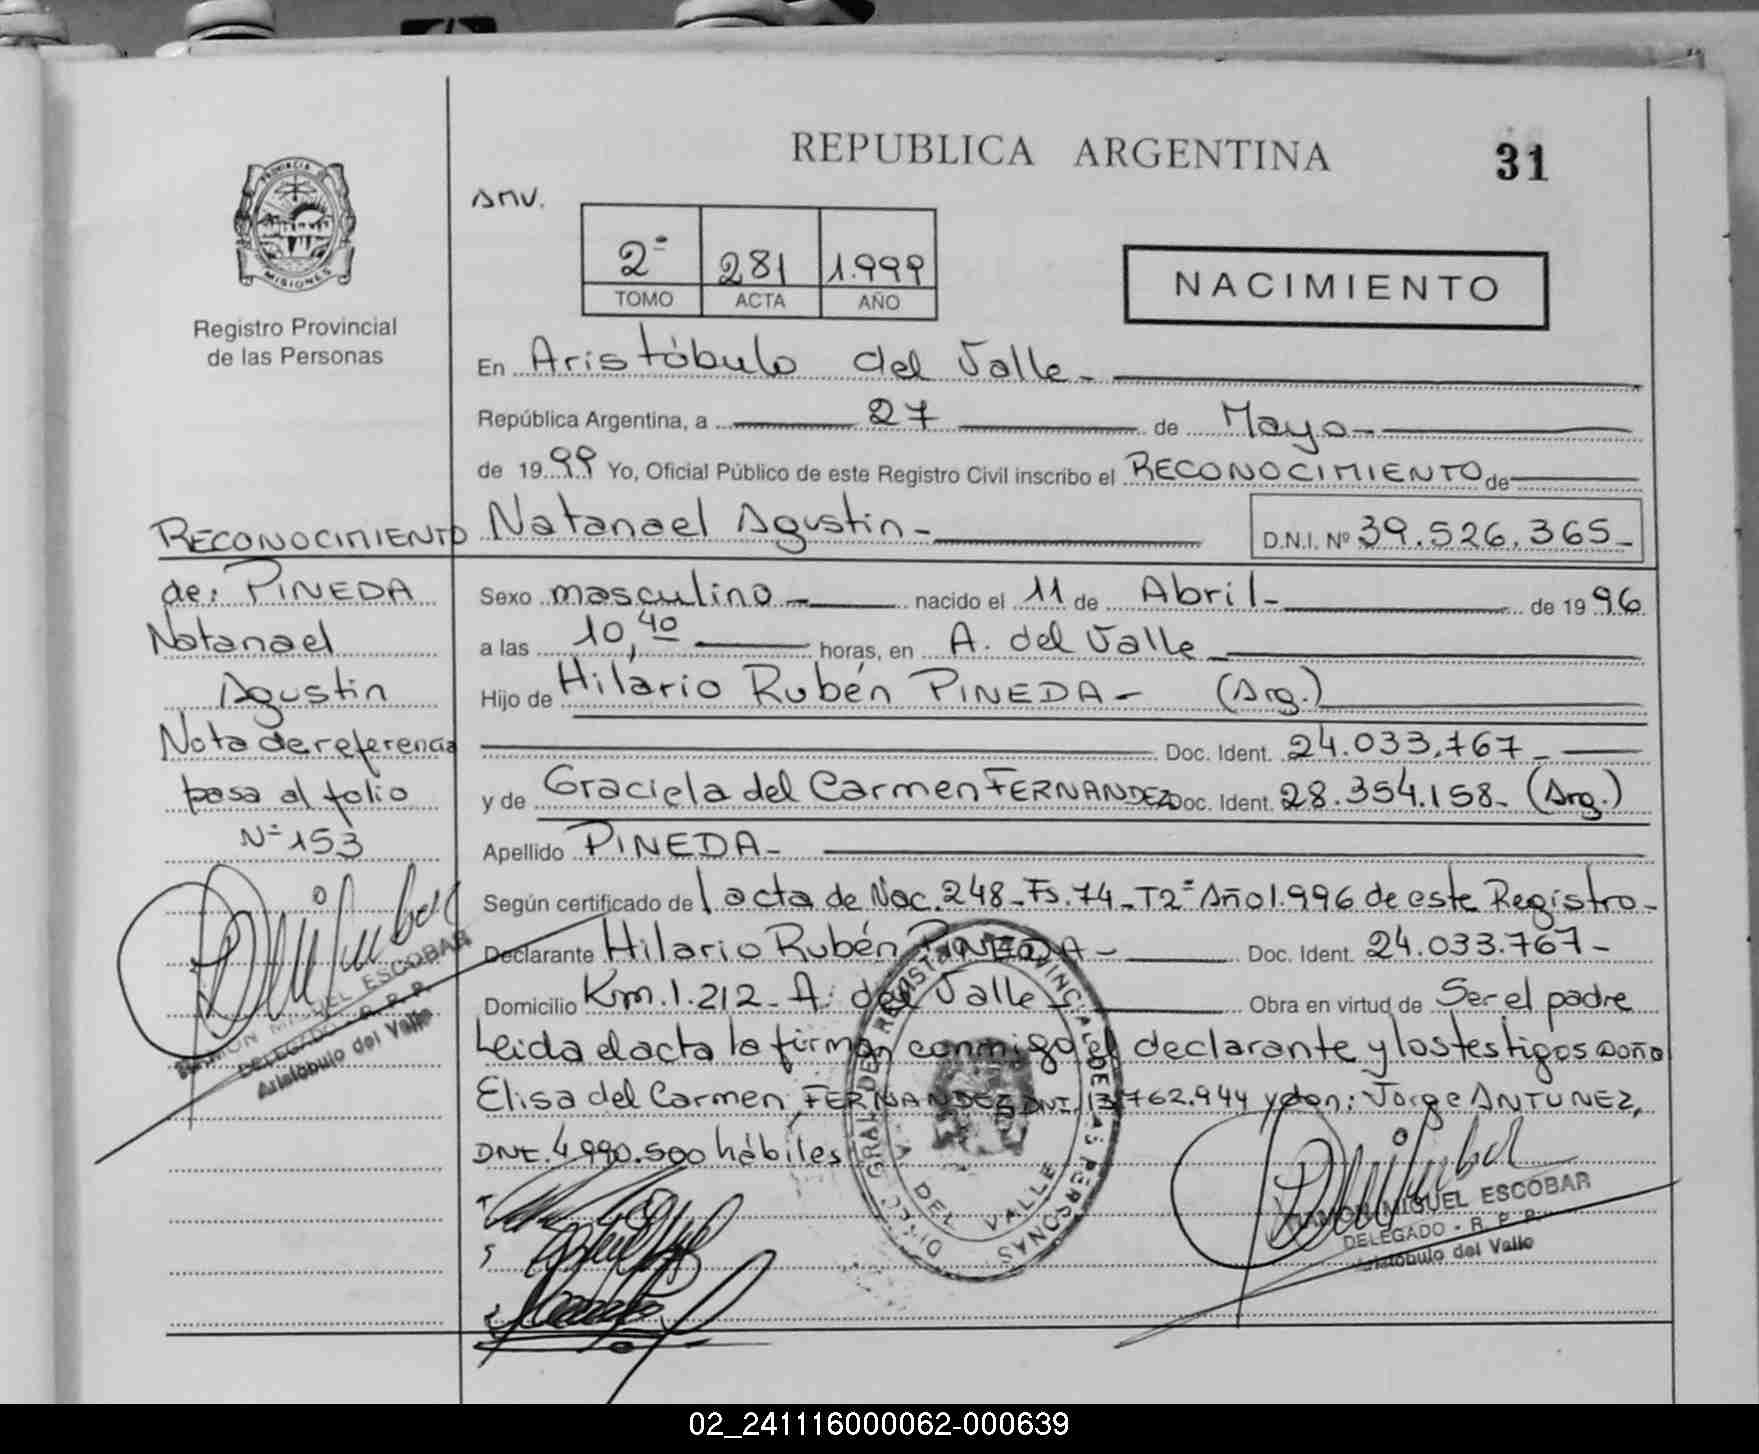 REPUBLICA ARGENTINA
31
PROVINCIA DE
MISIONES
Registro Provincial
de las Personas
Anv.
2º 281 1.999
TOMO ACTA AÑO
NACIMIENTO
En Aristóbulo del Valle-
República Argentina, a 27 de Mayo-
de 1999 Yo, Oficial Público de este Registro Civil inscribo el RECONOCIMIENTO de
Natanael Agustin- D.N.I. Nº 39.526.365-
Sexo masculino- nacido el 11 de Abril- de 1996
a las 10,40 horas, en A. del Valle-
Hijo de Hilario Rubén PINEDA- (Arg.)
Doc. Ident. 24.033.767-
y de Graciela del Carmen FERNANDEZ Doc. Ident. 28.354.158- (Arg.)
Apellido PINEDA-
Según certificado de l acta de Nac. 248-Fs.74-T2º Año 1.996 de este Registro-
Declarante Hilario Rubén PINEDA- Doc. Ident. 24.033.767-
Domicilio Km.1.212- A. del Valle- Obra en virtud de Ser el padre
Leida el acta la firman conmigo el declarante y los testigos Doña
Elisa del Carmen FERNANDEZ DNI.13.762.944 y don: Jorge ANTUNEZ,
DNI. 4.990.500 hábiles
RECONOCIMIENTO
de: PINEDA
Natanael
Agustin
Nota de referencia
pasa al folio
Nº 153
RAMON MIGUEL ESCOBAR
DELEGADO - R. P. P.
Aristóbulo del Valle
DIREC. GRAL. DEL REGISTRO PROVINCIAL DE LAS PERSONAS
A. DEL VALLE
RAMON MIGUEL ESCOBAR
DELEGADO - R. P. P.
Aristóbulo del Valle
02_241116000062-000639